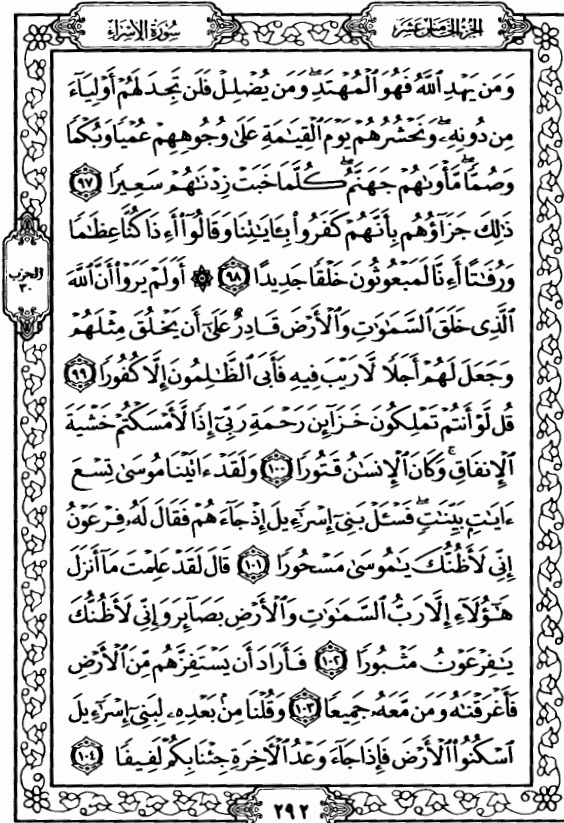 سُورَةُ الإِسْرَاءِ
الجُزْءُ الخَامِسَ عَشَرَ
وَمَن يَهْدِ ٱللَّهُ فَهُوَ ٱلْمُهْتَدِ ۖ وَمَن يُضْلِلْ فَلَن تَجِدَ لَهُمْ أَوْلِيَآءَ
مِن دُونِهِۦ ۖ وَنَحْشُرُهُمْ يَوْمَ ٱلْقِيَٰمَةِ عَلَىٰ وُجُوهِهِمْ عُمْيًا وَبُكْمًا
وَصُمًّا ۖ مَّأْوَىٰهُمْ جَهَنَّمُ ۖ كُلَّمَا خَبَتْ زِدْنَٰهُمْ سَعِيرًا ٩٧
ذَٰلِكَ جَزَآؤُهُم بِأَنَّهُمْ كَفَرُوا۟ بِـَٔايَٰتِنَا وَقَالُوٓا۟ أَءِذَا كُنَّا عِظَٰمًا
وَرُفَٰتًا أَءِنَّا لَمَبْعُوثُونَ خَلْقًا جَدِيدًا ٩٨ ۞ أَوَلَمْ يَرَوْا۟ أَنَّ ٱللَّهَ
ٱلَّذِى خَلَقَ ٱلسَّمَٰوَٰتِ وَٱلْأَرْضَ قَادِرٌ عَلَىٰٓ أَن يَخْلُقَ مِثْلَهُمْ
وَجَعَلَ لَهُمْ أَجَلًا لَّا رَيْبَ فِيهِ فَأَبَى ٱلظَّٰلِمُونَ إِلَّا كُفُورًا ٩٩
قُل لَّوْ أَنتُمْ تَمْلِكُونَ خَزَآئِنَ رَحْمَةِ رَبِّىٓ إِذًا لَّأَمْسَكْتُمْ خَشْيَةَ
ٱلْإِنفَاقِ ۚ وَكَانَ ٱلْإِنسَٰنُ قَتُورًا ١٠٠ وَلَقَدْ ءَاتَيْنَا مُوسَىٰ تِسْعَ
ءَايَٰتٍۭ بَيِّنَٰتٍ ۖ فَسْـَٔلْ بَنِىٓ إِسْرَٰٓءِيلَ إِذْ جَآءَهُمْ فَقَالَ لَهُۥ فِرْعَوْنُ
إِنِّى لَأَظُنُّكَ يَٰمُوسَىٰ مَسْحُورًا ١٠١ قَالَ لَقَدْ عَلِمْتَ مَآ أَنزَلَ
هَٰٓؤُلَآءِ إِلَّا رَبُّ ٱلسَّمَٰوَٰتِ وَٱلْأَرْضِ بَصَآئِرَ وَإِنِّى لَأَظُنُّكَ
يَٰفِرْعَوْنُ مَثْبُورًا ١٠٢ فَأَرَادَ أَن يَسْتَفِزَّهُم مِّنَ ٱلْأَرْضِ
فَأَغْرَقْنَٰهُ وَمَن مَّعَهُۥ جَمِيعًا ١٠٣ وَقُلْنَا مِنۢ بَعْدِهِۦ لِبَنِىٓ إِسْرَٰٓءِيلَ
ٱسْكُنُوا۟ ٱلْأَرْضَ فَإِذَا جَآءَ وَعْدُ ٱلْـَٔاخِرَةِ جِئْنَا بِكُمْ لَفِيفًا ١٠٤
الحزب
٣٠
٢٩٢